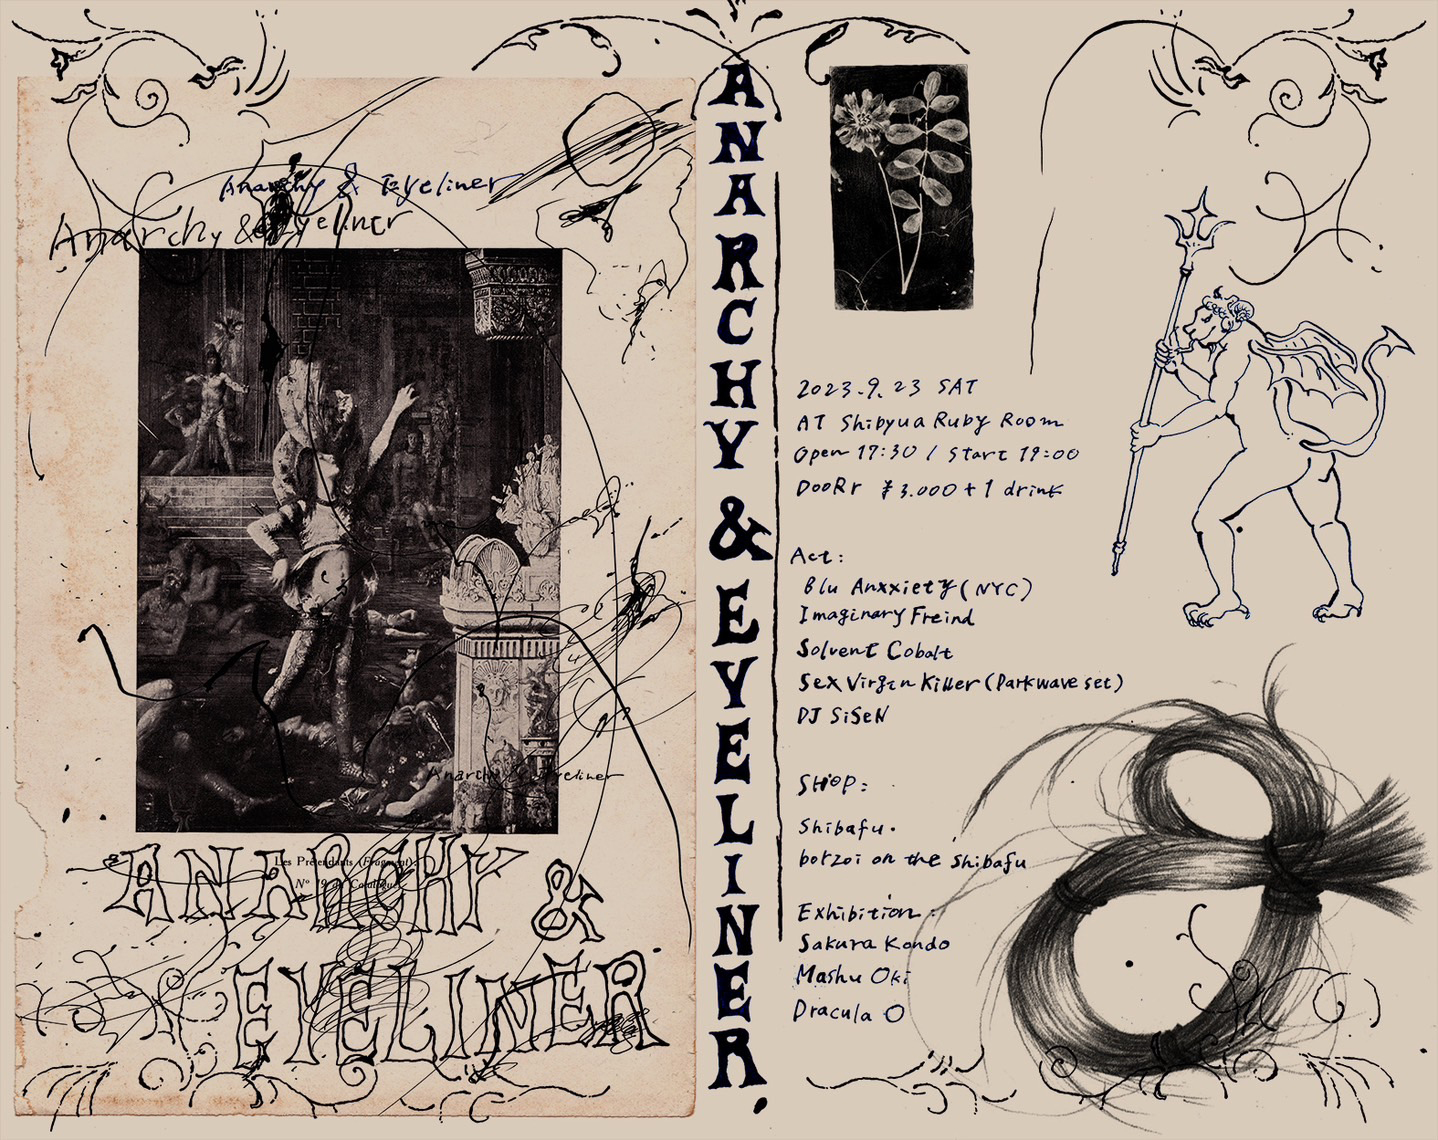 Anarchy & Eyeliner
Anarchy & Eyeliner
Anarchy & Eyeliner
Les Prétendants (Fragment)
Nº 19 du Catalogue
ANARCHY &
EYELINER
ANARCHY & EYELINER
2023.9.23 SAT
AT Shibyua Ruby Room
Open 17:30 / Start 19:00
DooRr ¥3.000+1 drink
Act:
Blu Anxxiety (NYC)
Imaginary Freind
Solvent Cobalt
Sex Virgin Killer (Darkwave set)
DJ SiSeN
SHOP:
Shibafu.
borzoi on the Shibafu
Exhibition:
Sakura Kondo
Mashu Oki
Dracula O